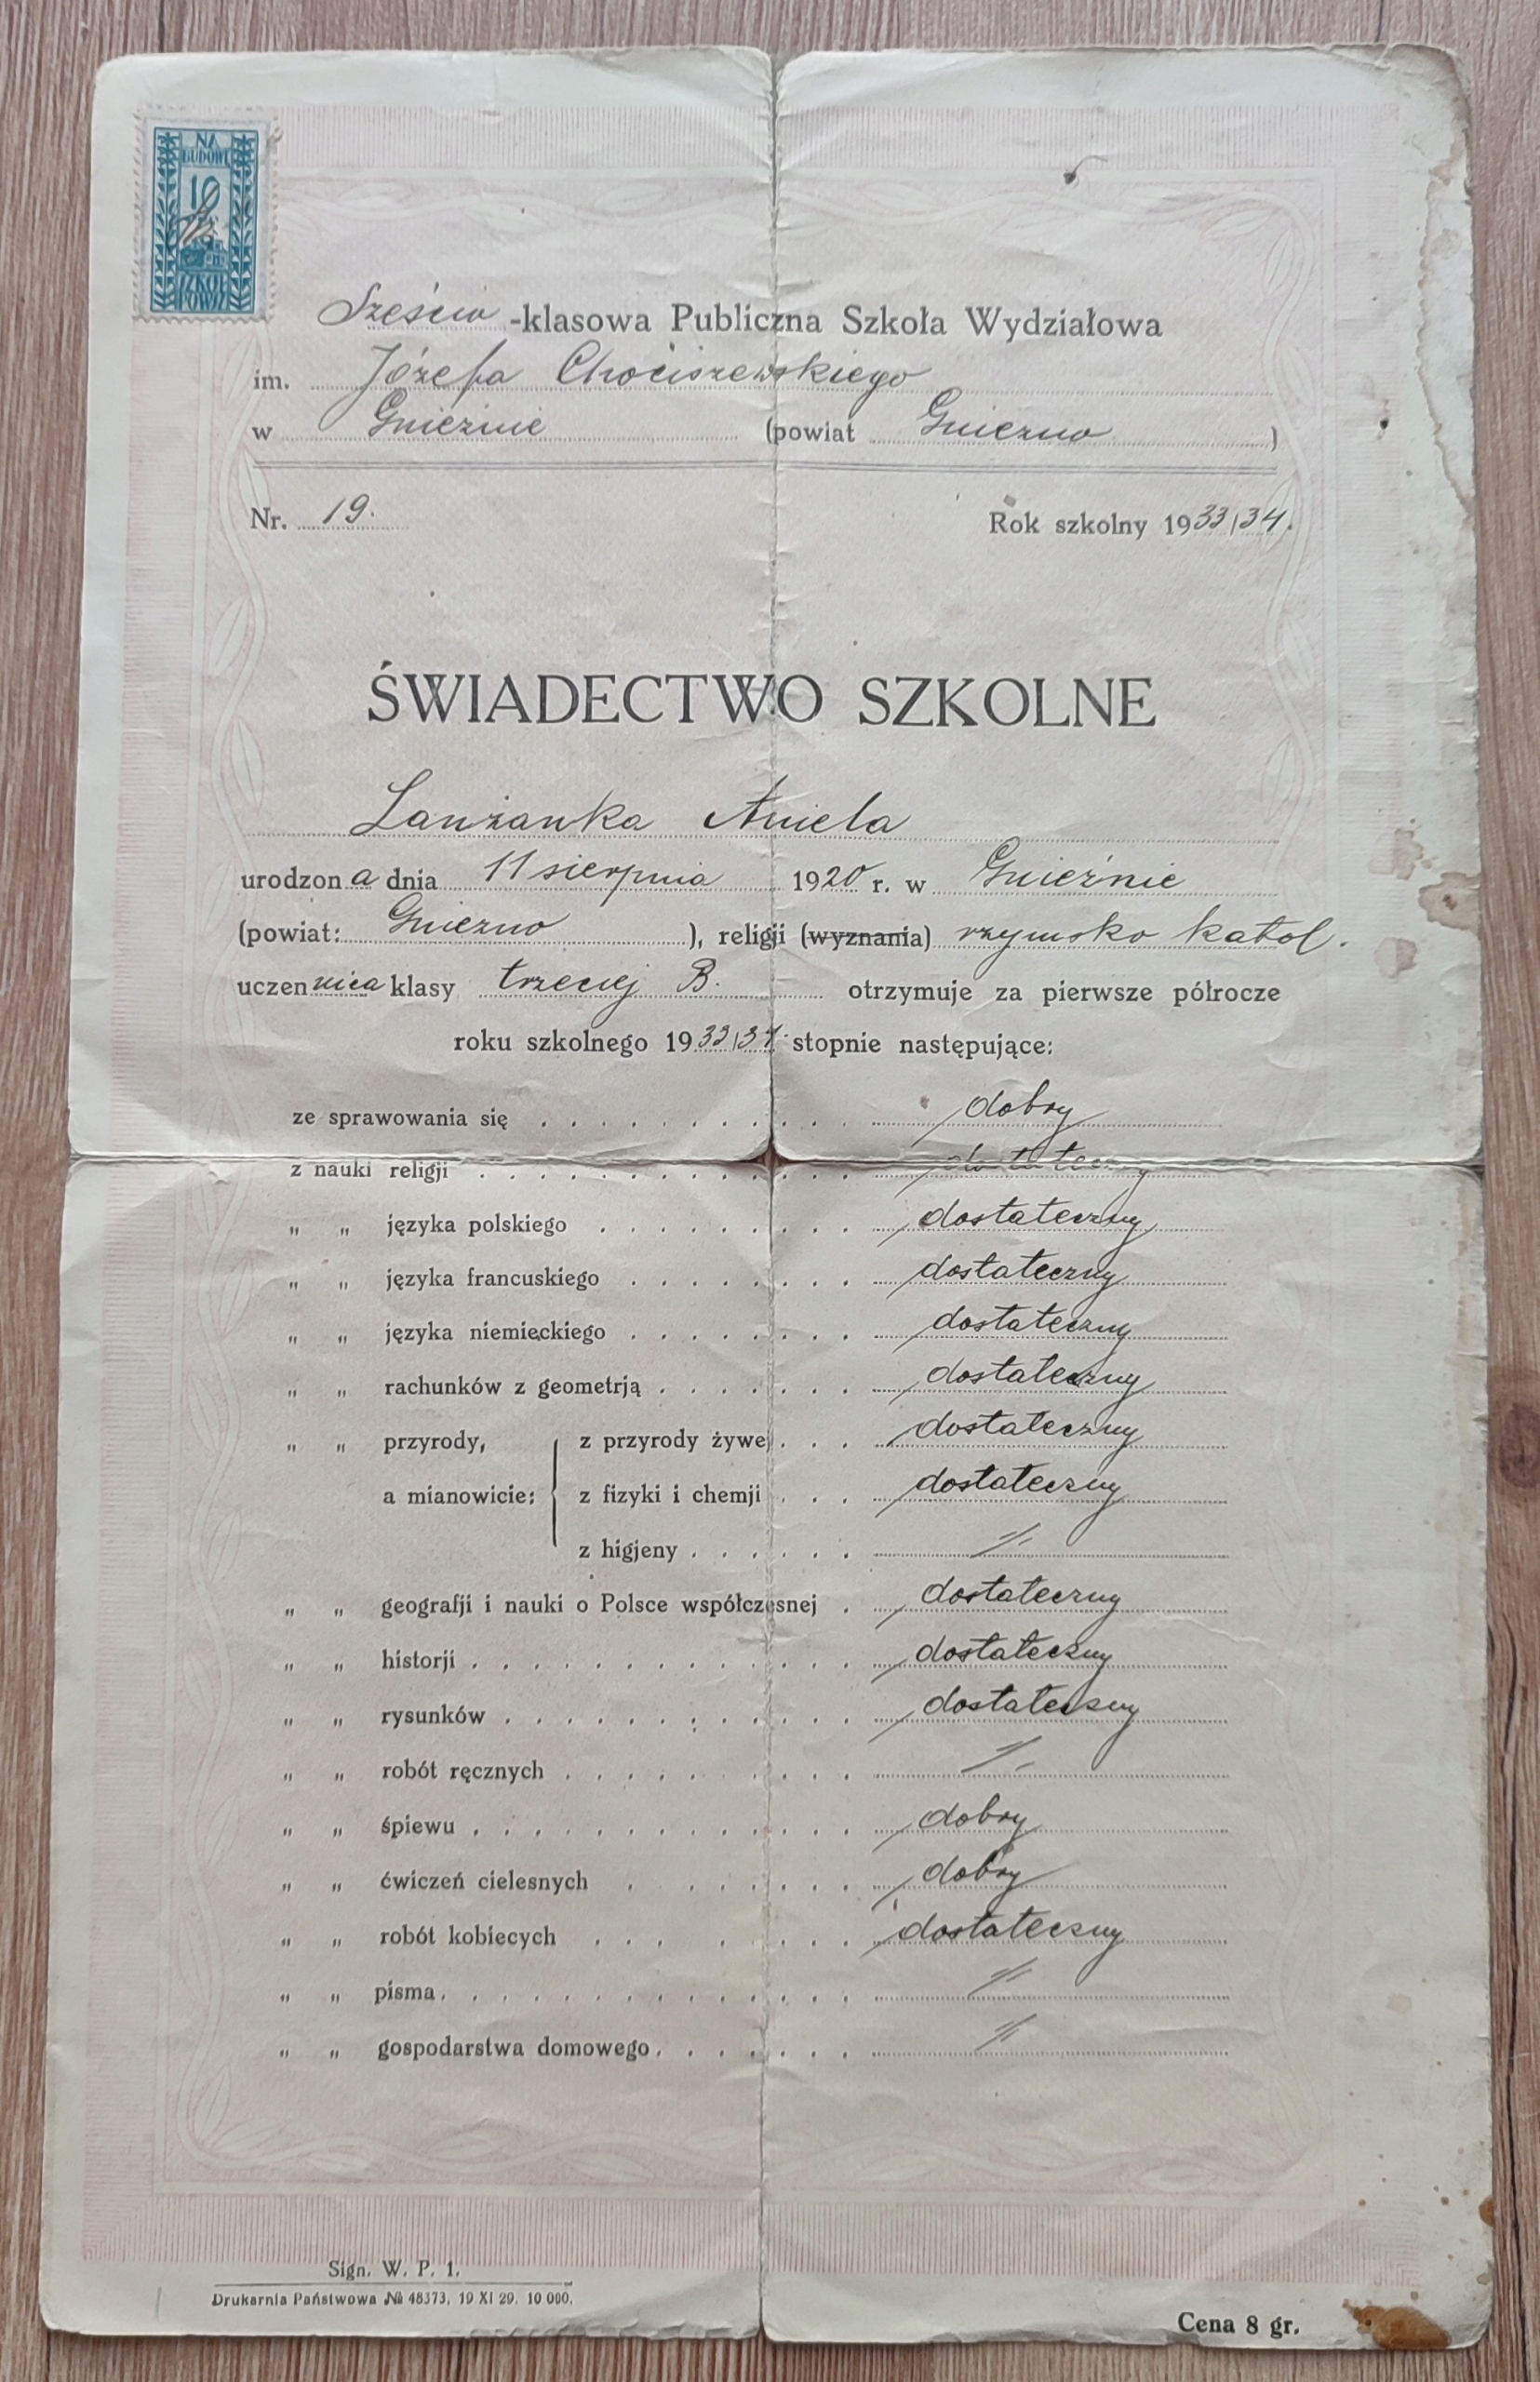 NA
BUDOWĘ
10
SZKÓŁ
POWSZ
Sześcio-klasowa Publiczna Szkoła Wydziałowa
im. Józefa Chociszewskiego
w Gnieźnie (powiat Gniezno)
Nr. 19. Rok szkolny 1933/34.
ŚWIADECTWO SZKOLNE
Lanżanka Aniela
urodzona dnia 11 sierpnia 1920 r. w Gnieźnie
(powiat: Gniezno), religji (wyznania) rzymsko katol.
uczennica klasy trzeciej B. otrzymuje za pierwsze półrocze
roku szkolnego 1933/34 stopnie następujące:
ze sprawowania się dobry
z nauki religji dostateczny
„ „ języka polskiego dostateczny
„ „ języka francuskiego dostateczny
„ „ języka niemieckiego dostateczny
„ „ rachunków z geometrją dostateczny
„ „ przyrody, z przyrody żywej dostateczny
a mianowicie: z fizyki i chemji dostateczny
z higjeny
„ „ geografji i nauki o Polsce współczesnej dostateczny
„ „ historji dostateczny
„ „ rysunków dostateczny
„ „ robót ręcznych
„ „ śpiewu dobry
„ „ ćwiczeń cielesnych dobry
„ „ robót kobiecych dostateczny
„ „ pisma
„ „ gospodarstwa domowego
Sign. W. P. 1.
Drukarnia Państwowa № 48373, 19 XI 29. 10 000.
Cena 8 gr.